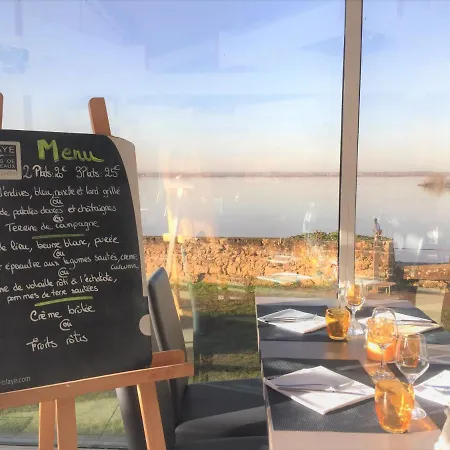 AYE
Menu
2 Plats: 2 € 3 Plats: 25€
d'endives, bleu, poire et lard grillé
ou
de patates douces et châtaignes
ou
Terrine de campagne
de lieu, beurre blanc, purée
ou
épeautre aux légumes sautés, crème
ou
de volaille rôti à l'échalote,
pommes de terre sautées
Crème brûlée
ou
Fruits rôtis
laye.com